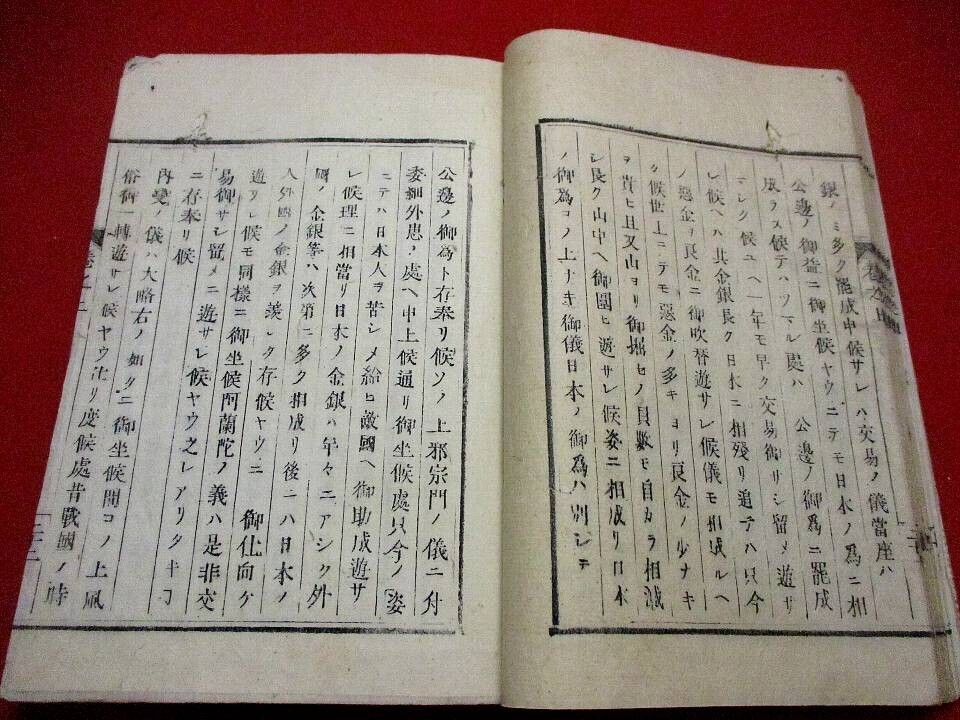 銀ノミ多ク罷成申候サレハ交易ノ儀當座ハ
公邊ノ御益ニ御坐候ヤウニテモ日本ノ為ニ相
成ラス候テハツマル處ハ 公邊ノ御為ニ罷成
レク候ユヘ一年モ早ク交易御サシ留メ遊サ
レ候ヘハ其金銀長ク日本ニ相殘リ追テハ只今
ノ惡金ヲ良金ニ御吹替遊サレ候儀モ相成ルヘ
ク候世上ニテモ惡金ノ多キヨリ良金ノ少ナキ
ヲ貴ヒ且又山ヨリ御掘セノ員數モ自カラ相減
シ良ク山中ヘ御圍ヒ遊サレ候姿ニ相成リ日本
ノ御為コノ上ナキ御儀日本ノ御為ハ別シテ
公邊ノ御為ト存奉リ候ソノ上邪宗門ノ儀ニ付
委細外患ノ處ヘ申上候通リ御坐候處只今ノ姿
ニテハ日本人ヲ苦シメ給ヒ敵國ヘ御助成遊サ
レ候理ニ相當リ日本ノ金銀ハ年々ニアシク外
國ノ金銀等ハ次第ニ多ク相成リ後ニハ日本ノ
人外國ノ金銀ヲ羨シク存候ヤウニ 御仕向ケ
遊ラレ候モ同樣ニ御坐候阿蘭陀ノ義ハ是非交
易御サシ留メニ遊サレ候ヤウ之レアリタキコ
ニ存奉リ候
内變ノ儀ハ大略右ノ如クニ御坐候間コノ上風
俗御一轉遊サレ候ヤウ仕リ度候處昔戰國ノ時
卷之